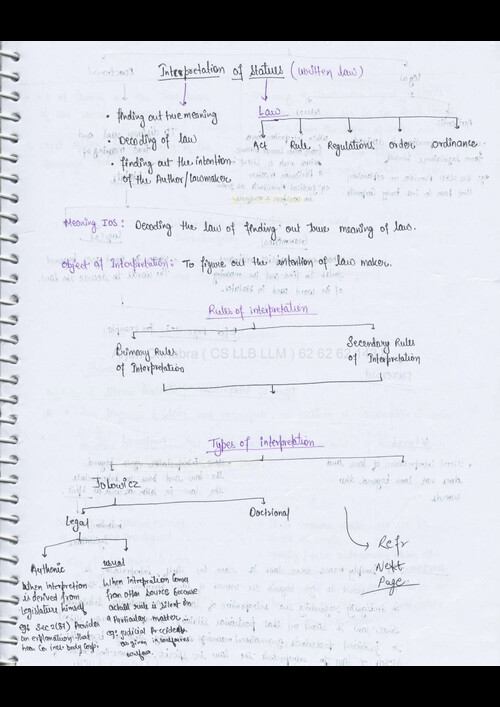 Interpretation of Statues (written law)
• finding out true meaning
• Decoding of law
• finding out the intention
of the Author/lawmaker
Law
Act Rule Regulations order ordinance
Meaning IOS: Decoding the law of finding out true meaning of law.
Object of Interpretation: To figure out the intention of law maker.
Rules of interpretation
Primary Rules
of Interpretation
Secondary Rules
of Interpretation
( CS LLB LLM ) 62 62 62
Types of interpretation
Jolowicz
Legal
Doctrional
Authenic
When interpretion
is derived from
legislature himself
eg: Sec 2(87) Provides
an explanation that
usual
When Intrepration comes
from other source because
actual rule is silent on
a Particular matter
eg: judicial
as given in
Refr
Next
Page